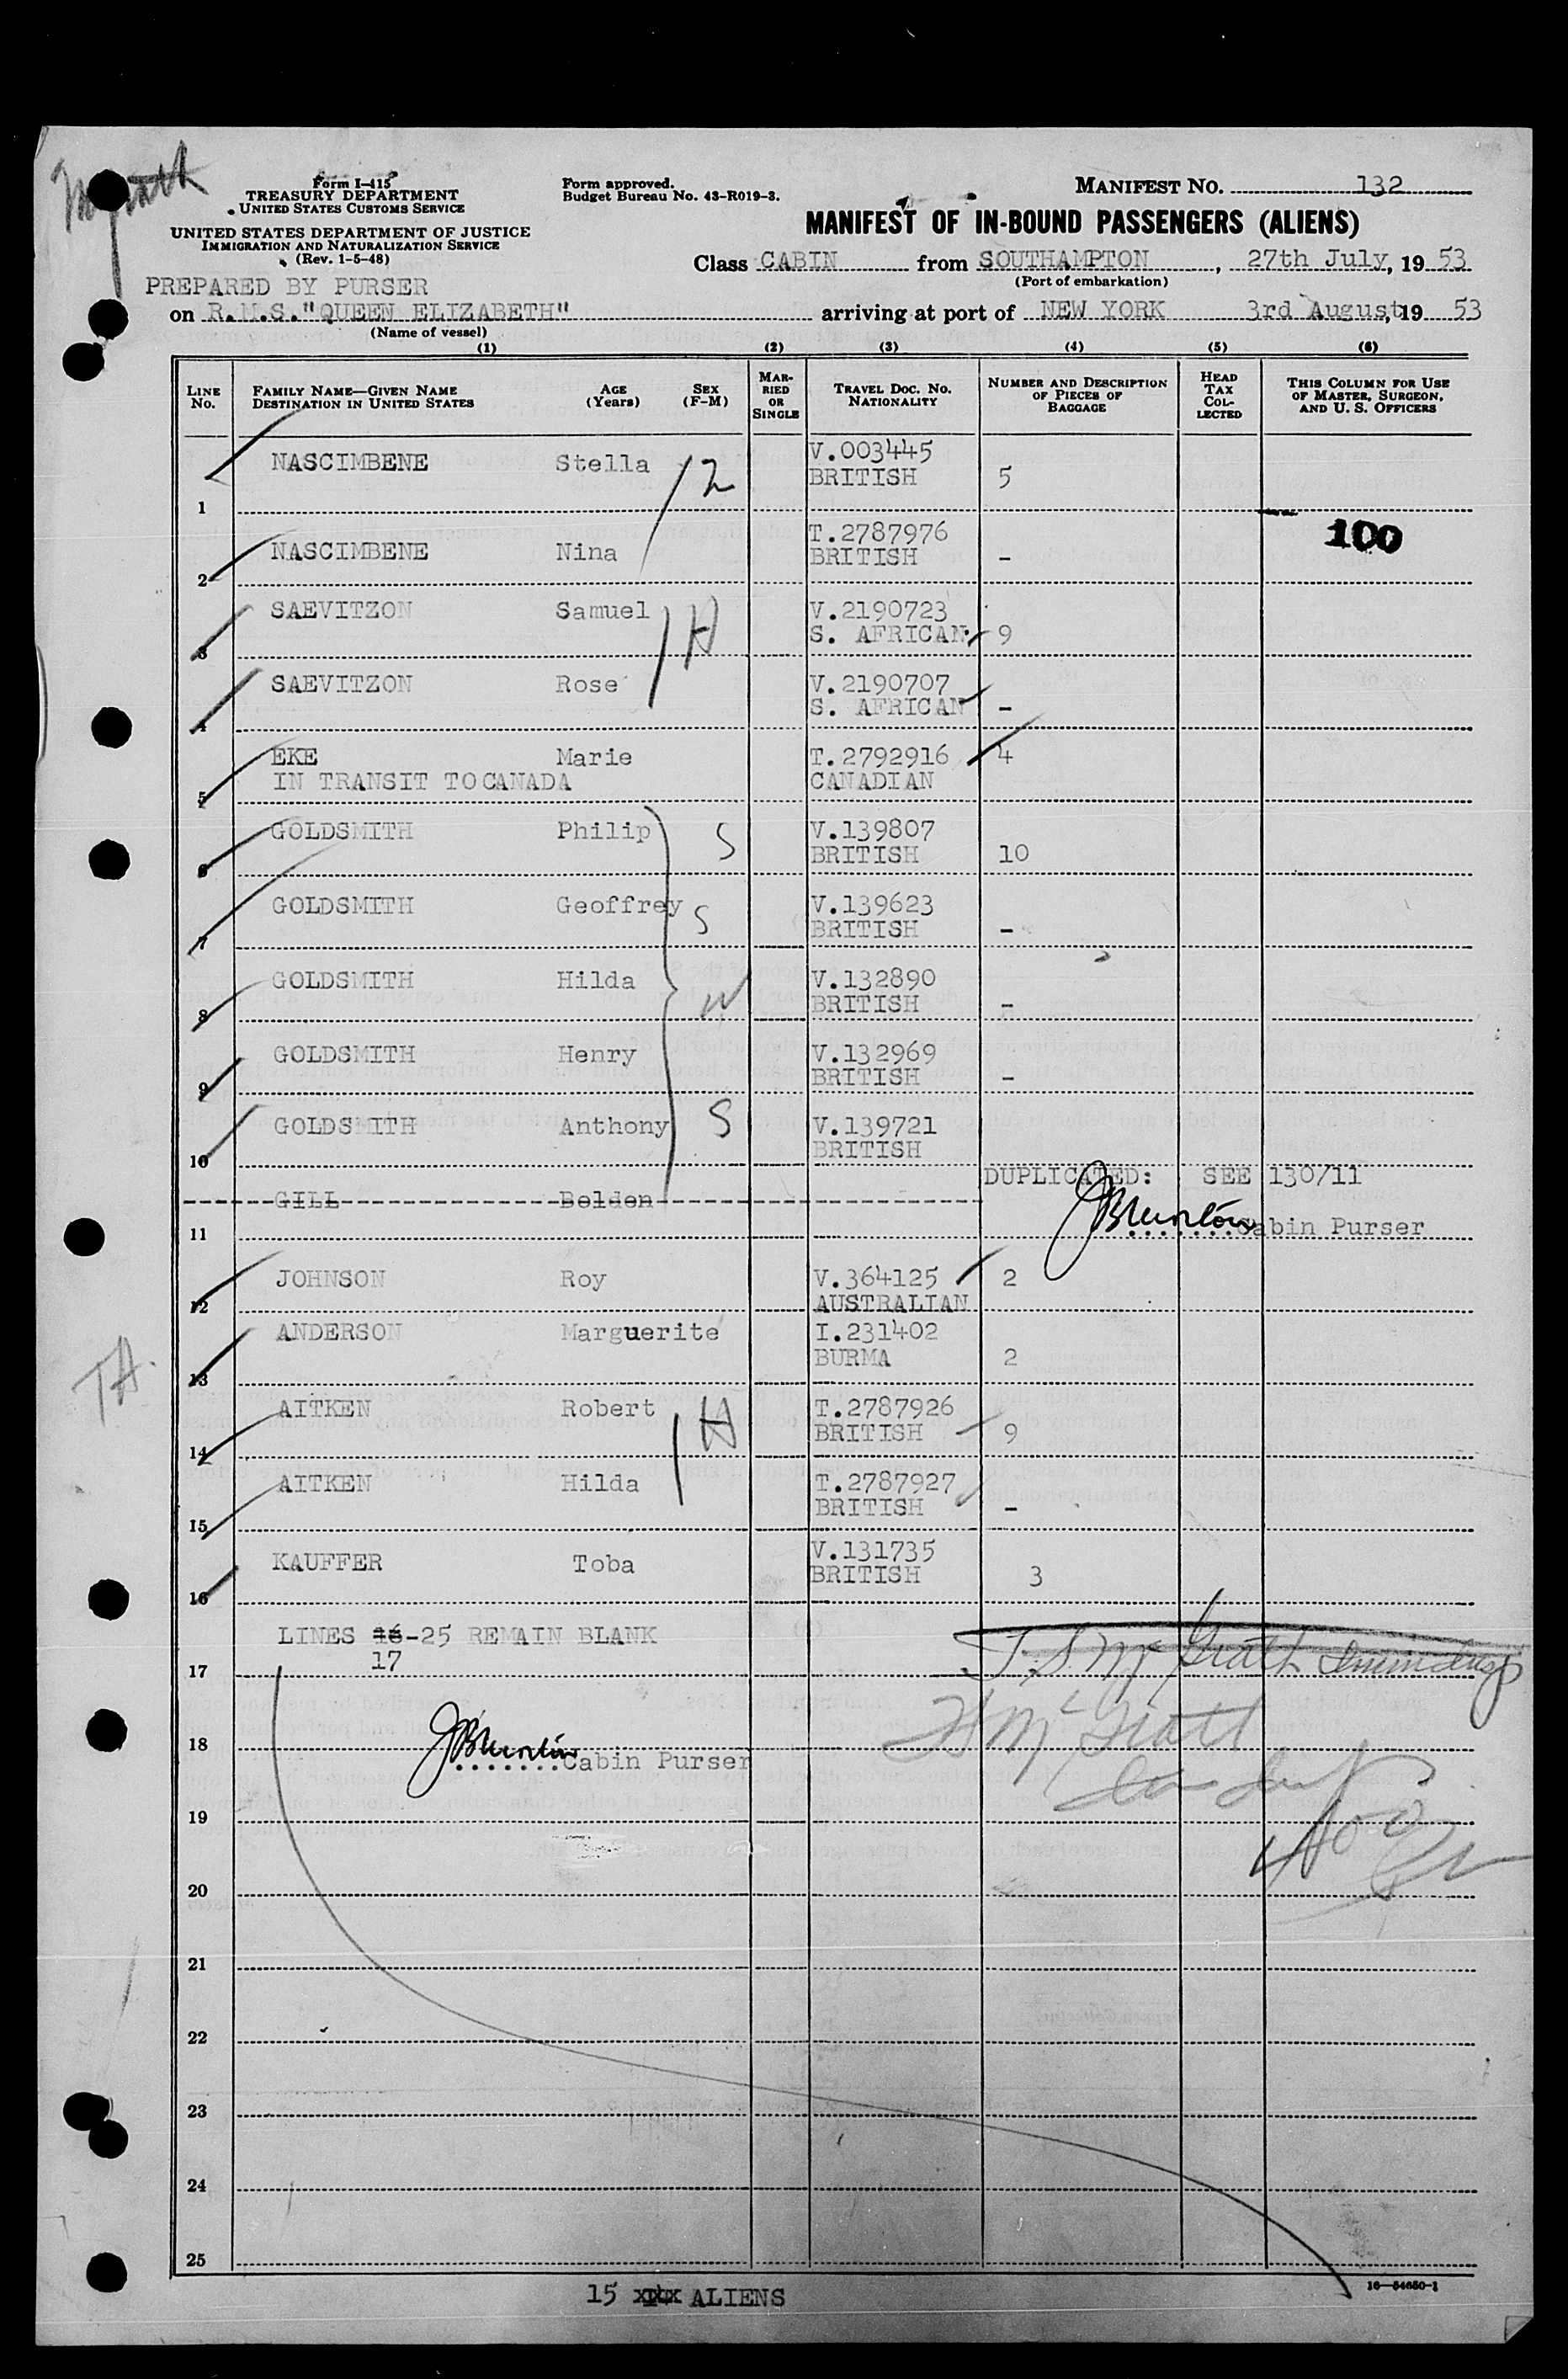 McGrath
Form I-415
TREASURY DEPARTMENT
UNITED STATES CUSTOMS SERVICE
UNITED STATES DEPARTMENT OF JUSTICE
IMMIGRATION AND NATURALIZATION SERVICE
(Rev. 1-5-48)
Form approved.
Budget Bureau No. 43-R019-3.
MANIFEST NO. 132
MANIFEST OF IN-BOUND PASSENGERS (ALIENS)
Class CABIN from SOUTHAMPTON, 27th July, 19 53
(Port of embarkation)
PREPARED BY PURSER
on R.M.S. "QUEEN ELIZABETH" arriving at port of NEW YORK 3rd August, 19 53
(Name of vessel)
(1) (2) (3) (4) (5) (6)
LINE NO. FAMILY NAME—GIVEN NAME DESTINATION IN UNITED STATES AGE (Years) SEX (F-M) MARRIED OR SINGLE TRAVEL DOC. NO. NATIONALITY NUMBER AND DESCRIPTION OF PIECES OF BAGGAGE HEAD TAX COLLECTED THIS COLUMN FOR USE OF MASTER, SURGEON, AND U. S. OFFICERS
1 NASCIMBENE Stella 2 V.003445 BRITISH 5
2 NASCIMBENE Nina T.2787976 BRITISH - 100
3 SAEVITZON Samuel H V.2190723 S. AFRICAN 9
4 SAEVITZON Rose V.2190707 S. AFRICAN -
5 EKE Marie T.2792916 4
IN TRANSIT TO CANADA CANADIAN
6 GOLDSMITH Philip S V.139807 BRITISH 10
7 GOLDSMITH Geoffrey S V.139623 BRITISH -
8 GOLDSMITH Hilda W V.132890 BRITISH -
9 GOLDSMITH Henry V.132969 BRITISH -
10 GOLDSMITH Anthony S V.139721 BRITISH
DUPLICATED: SEE 130/11
11 GILL Belden
Cabin Purser
12 JOHNSON Roy V.364125 AUSTRALIAN 2
13 ANDERSON Marguerite I.231402 BURMA 2
TA.
14 AITKEN Robert H T.2787926 BRITISH 9
15 AITKEN Hilda T.2787927 BRITISH -
16 KAUFFER Toba V.131735 BRITISH 3
LINES 16-25 REMAIN BLANK
17 17
T. S. McGrath
McGrath
18 Cabin Purser
19
20
21
22
23
24
25
15 xxx ALIENS
16—54650-1